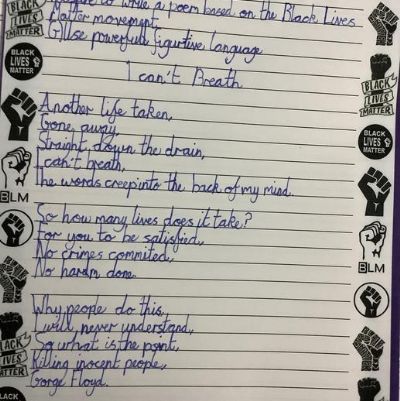 to write a poem based on the Black Lives
Matter movement
G) Use powerful figurtive language
I can't Breath
Another life taken,
Gone away,
Straight down the drain,
I can't breath,
The words creep into the back of my mind.
So how many lives does it take?
For you to be satisfied,
No crimes commited,
No harm done.
Why people do this,
I will never understand,
So what is the point,
Killing inocent people,
Gorge Floyd.
BLACK
LIVES
MATTER
BLACK
LIVES
MATTER
BLM
BLACK
LIVES
MATTER
BLACK
BLACK
LIVES
MATTER
BLACK
LIVES
MATTER
BLM